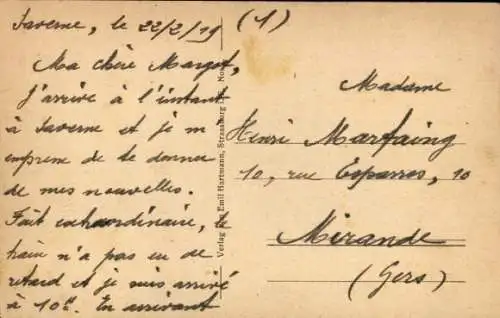 Saverne, le 22/2/19
Ma chère Margot,
J'arrive à l'instant
à Saverne et je m
empresse de te donner
de mes nouvelles.
Fait extraordinaire, le
train n'a pas eu de
retard et je suis arrivé
à 10h. En arrivant
(1)
Verlag von Emil Hartmann, Strassburg i. E.
Madame
Henri Marfaing
10, rue Esparros, 10
Mirande
(Gers)